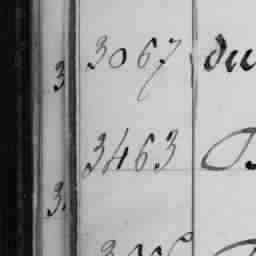 3067 du
3
3463
3.